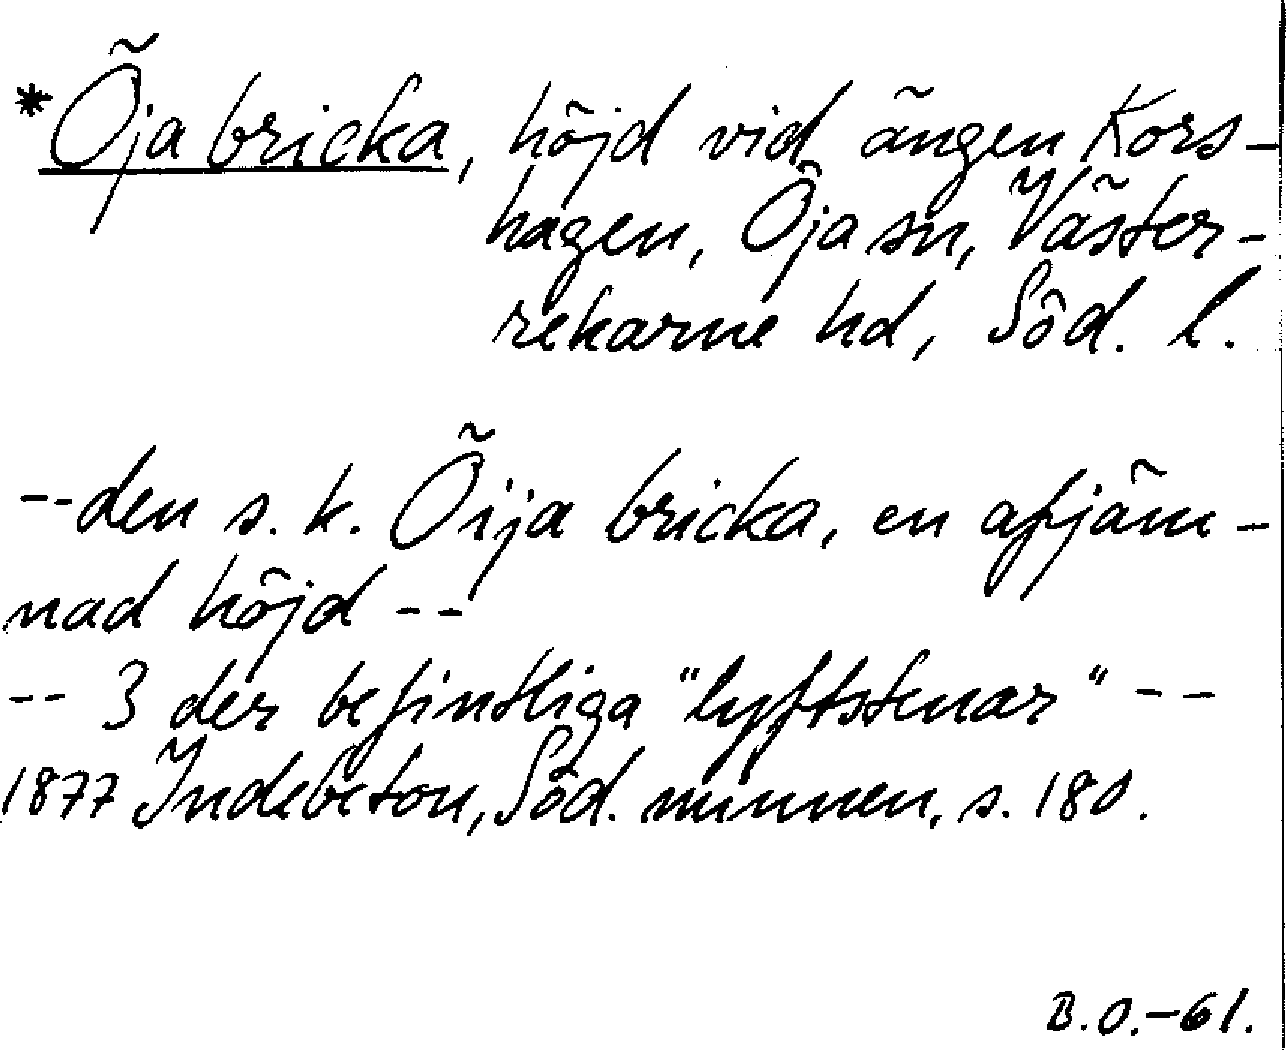 *Öja bricka, höjd vid ängen Kors-
hagen, Öja sn, Väster-
rekarne hd, Söd. l.
--den s. k. Öija bricka, en afjäm-
nad höjd --
-- 3 der befintliga "lyftstenar" --
1877 Indebetou, Söd. minnen, s. 180.
B.O.-61.